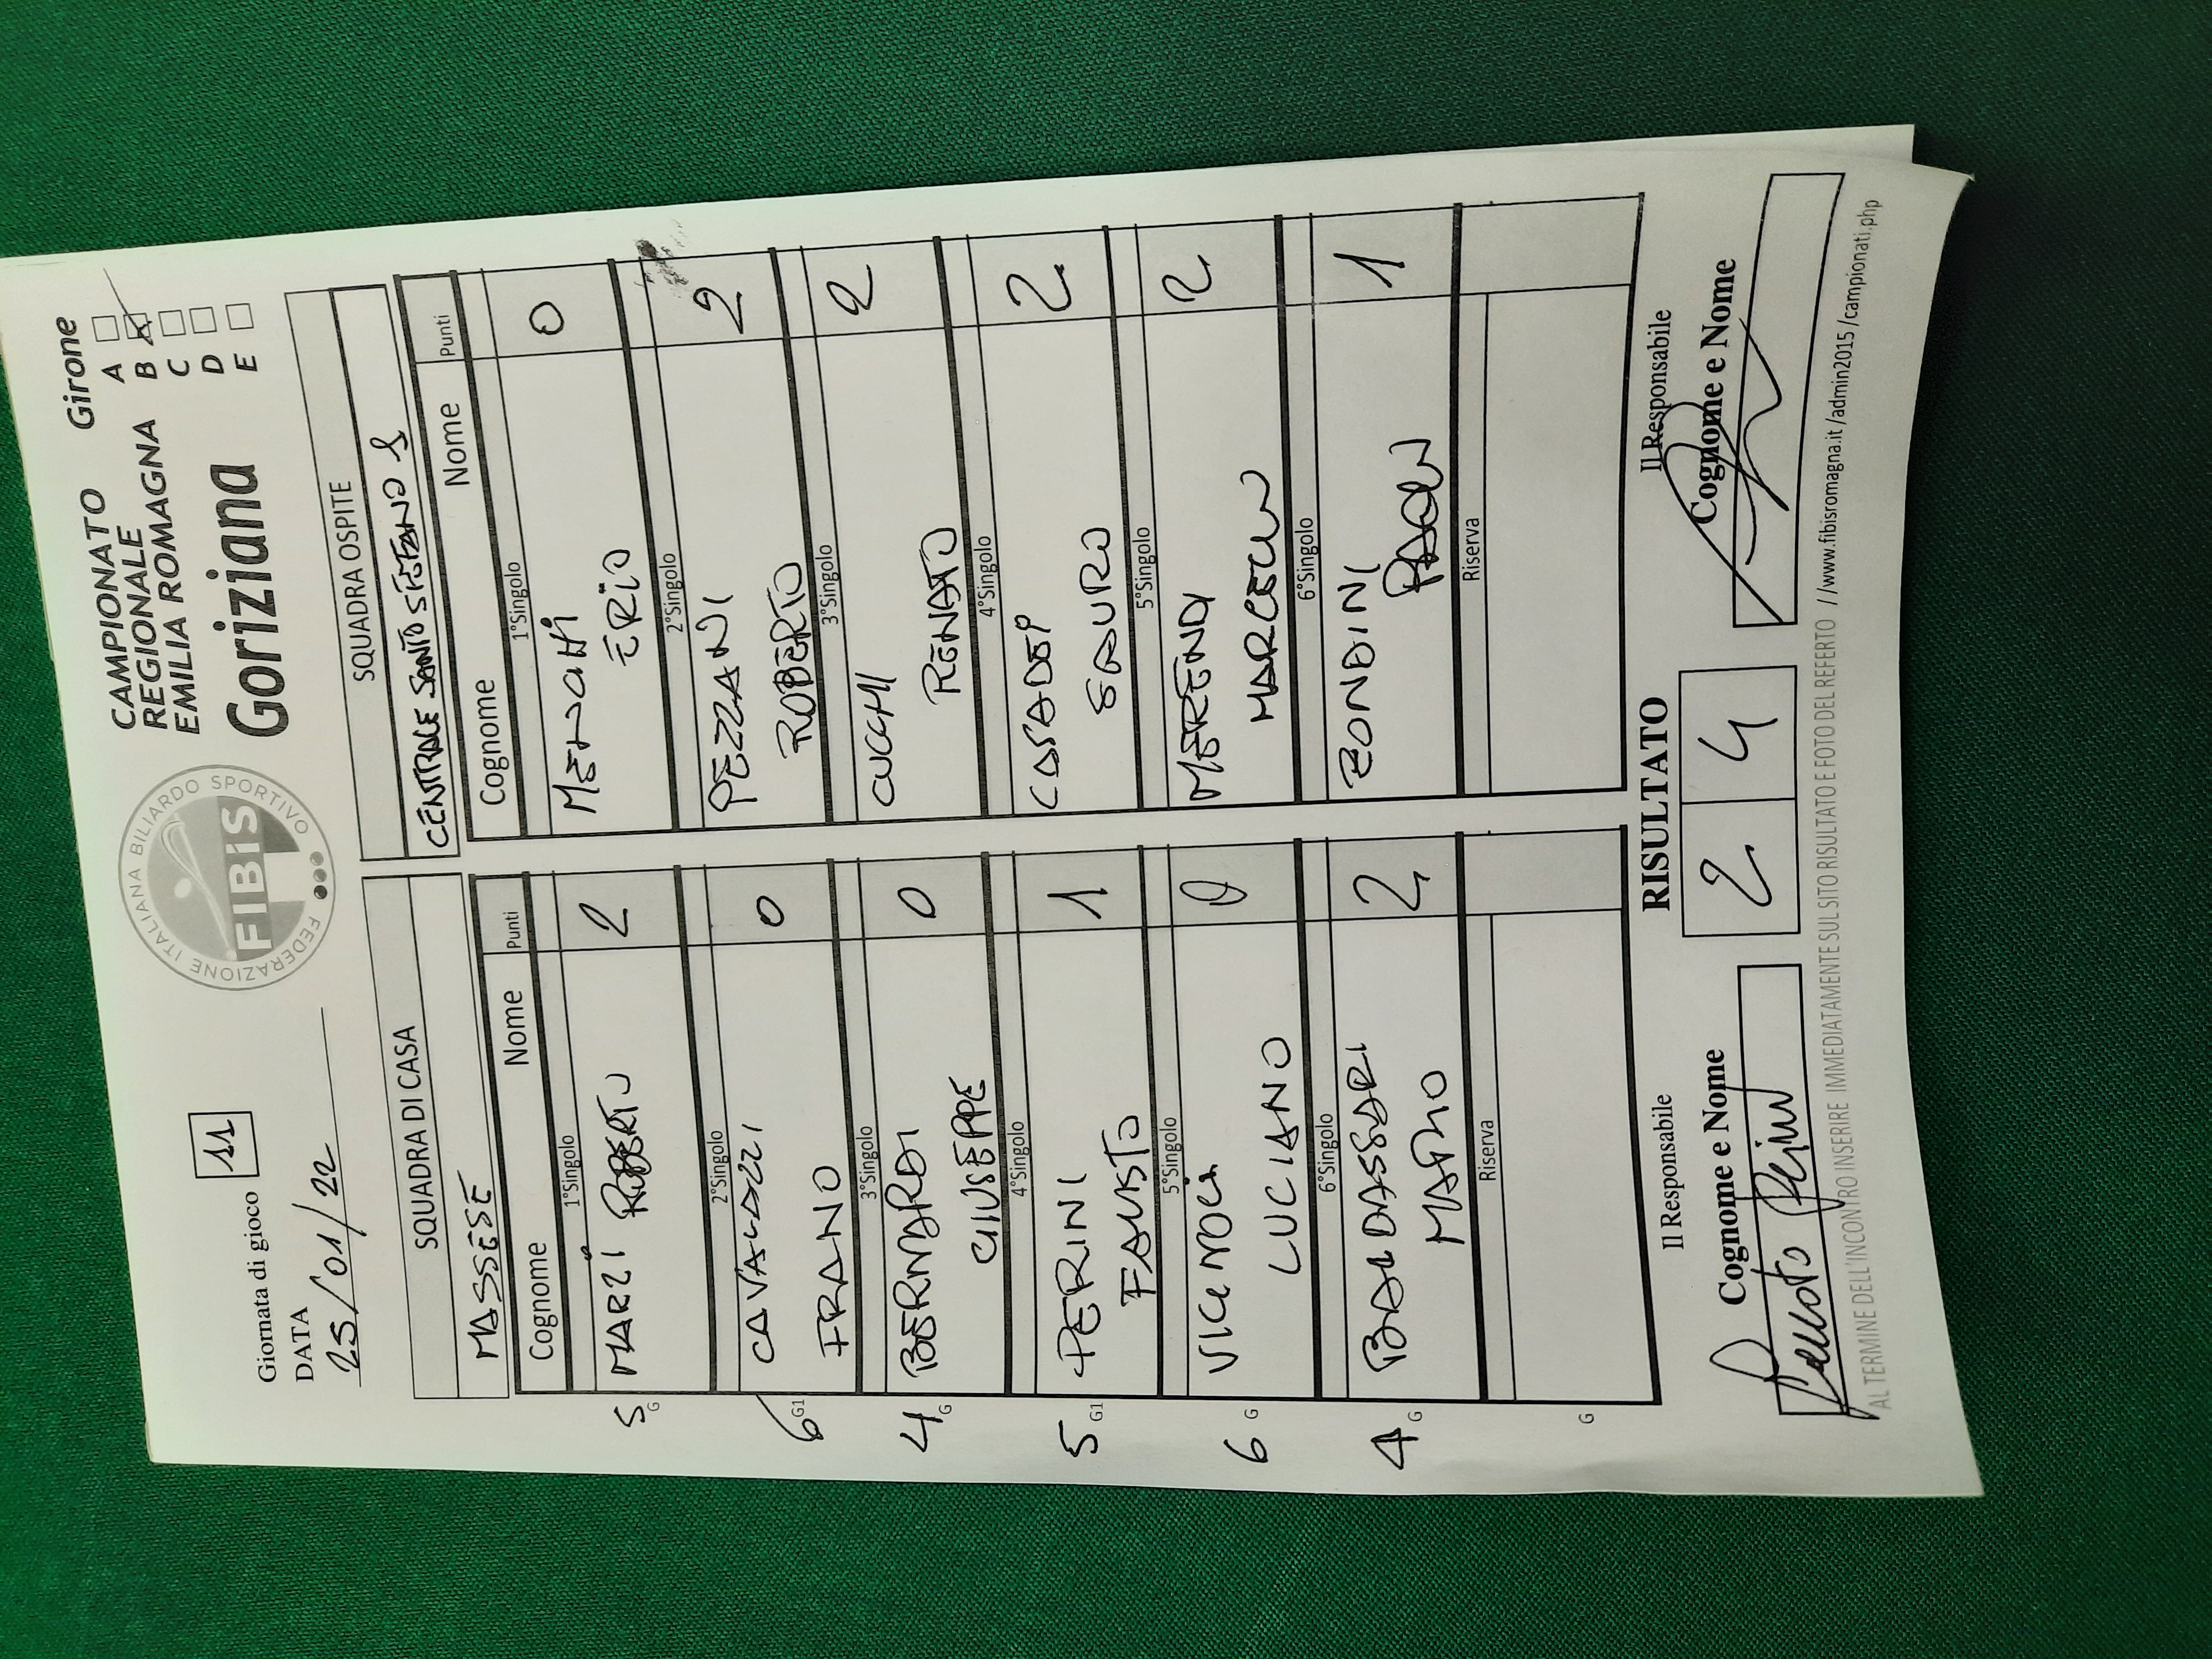 Giornata di gioco 11
DATA
25/01/22
FEDERAZIONE ITALIANA BILIARDO SPORTIVO
FIBiS
CAMPIONATO
REGIONALE
EMILIA ROMAGNA
Goriziana
Girone
A
B X
C
D
E
SQUADRA DI CASA
MASSESE
Cognome Nome Punti
1°Singolo
5 G MARZI ROBERTO 2
2°Singolo
6 G1 CAVALAZZI 0
FRANO
3°Singolo
4 G BERNARDI 0
GIUSEPPE
4°Singolo
5 G1 PERINI 1
FAUSTO
5°Singolo
6 G 0
LUCIANO
6°Singolo
4 G BALDASSARI 2
MARIO
Riserva
G
SQUADRA OSPITE
CENTRALE SANTO STEFANO 1
Cognome Nome Punti
1°Singolo
MENGHI 0
ERIO
2°Singolo
PEZZANI 2
ROBERTO
3°Singolo
CUCCHI 2
RENATO
4°Singolo
CASADEI 2
SAURO
5°Singolo
MERENDI 2
MARCELLO
6°Singolo
ZONDINI 1
PAOLO
Riserva
Il Responsabile
Cognome e Nome
RISULTATO
2 4
Il Responsabile
Cognome e Nome
AL TERMINE DELL'INCONTRO INSERIRE IMMEDIATAMENTE SUL SITO RISULTATO E FOTO DEL REFERTO //www.fibisromagna.it/admin2015/campionati.php